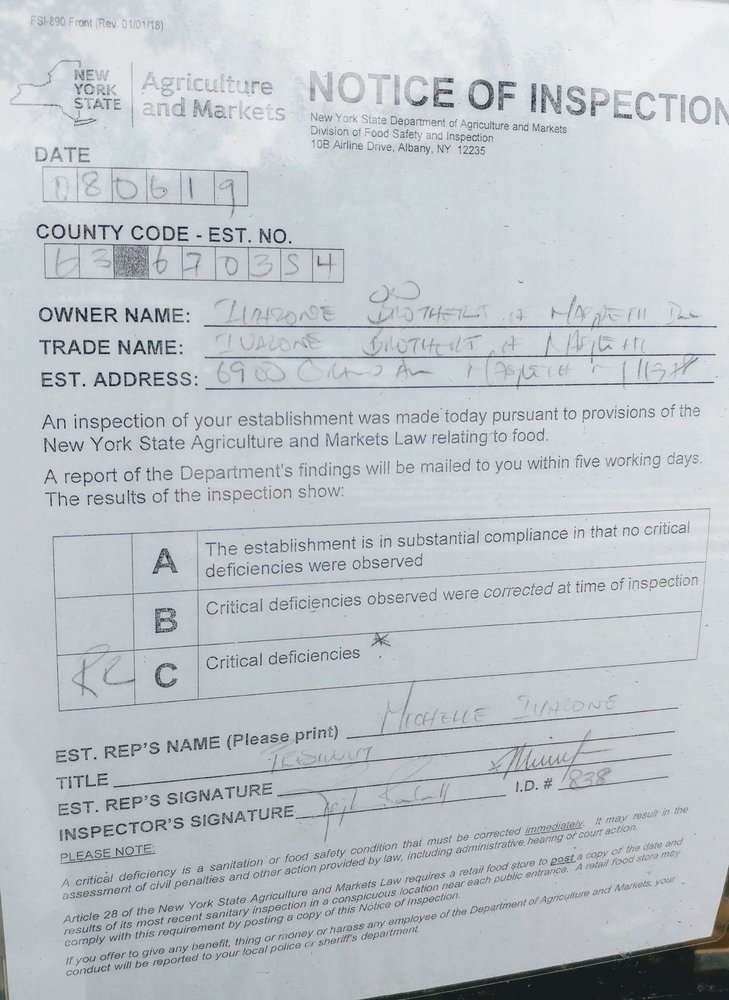 FSI-890 Front (Rev. 01/01/18)
NEW YORK STATE
Agriculture and Markets
NOTICE OF INSPECTION
New York State Department of Agriculture and Markets
Division of Food Safety and Inspection
10B Airline Drive, Albany, NY 12235
DATE
080619
COUNTY CODE - EST. NO.
63 670354
OWNER NAME: IAVARONE BROTHERS of MASPETH Inc
TRADE NAME: IAVARONE BROTHERS of MASPETH
EST. ADDRESS: 6900 GRAND Av MASPETH N 11378
An inspection of your establishment was made today pursuant to provisions of the
New York State Agriculture and Markets Law relating to food.
A report of the Department's findings will be mailed to you within five working days.
The results of the inspection show:
A The establishment is in substantial compliance in that no critical
deficiencies were observed
B Critical deficiencies observed were corrected at time of inspection
C Critical deficiencies *
EST. REP'S NAME (Please print) MICHELLE
TITLE PRESIDENT
EST. REP'S SIGNATURE
INSPECTOR'S SIGNATURE I.D. # 838
PLEASE NOTE:
A critical deficiency is a sanitation or food safety condition that must be corrected immediately. It may result in the
assessment of civil penalties and other action provided by law, including administrative hearing or court action.
Article 28 of the New York State Agriculture and Markets Law requires a retail food store to post a copy of the date and
results of its most recent sanitary inspection in a conspicuous location near each public entrance. A retail food store may
comply with this requirement by posting a copy of this Notice of Inspection.
If you offer to give any benefit, thing or money or harass any employee of the Department of Agriculture and Markets, your
conduct will be reported to your local police or sheriff's department.